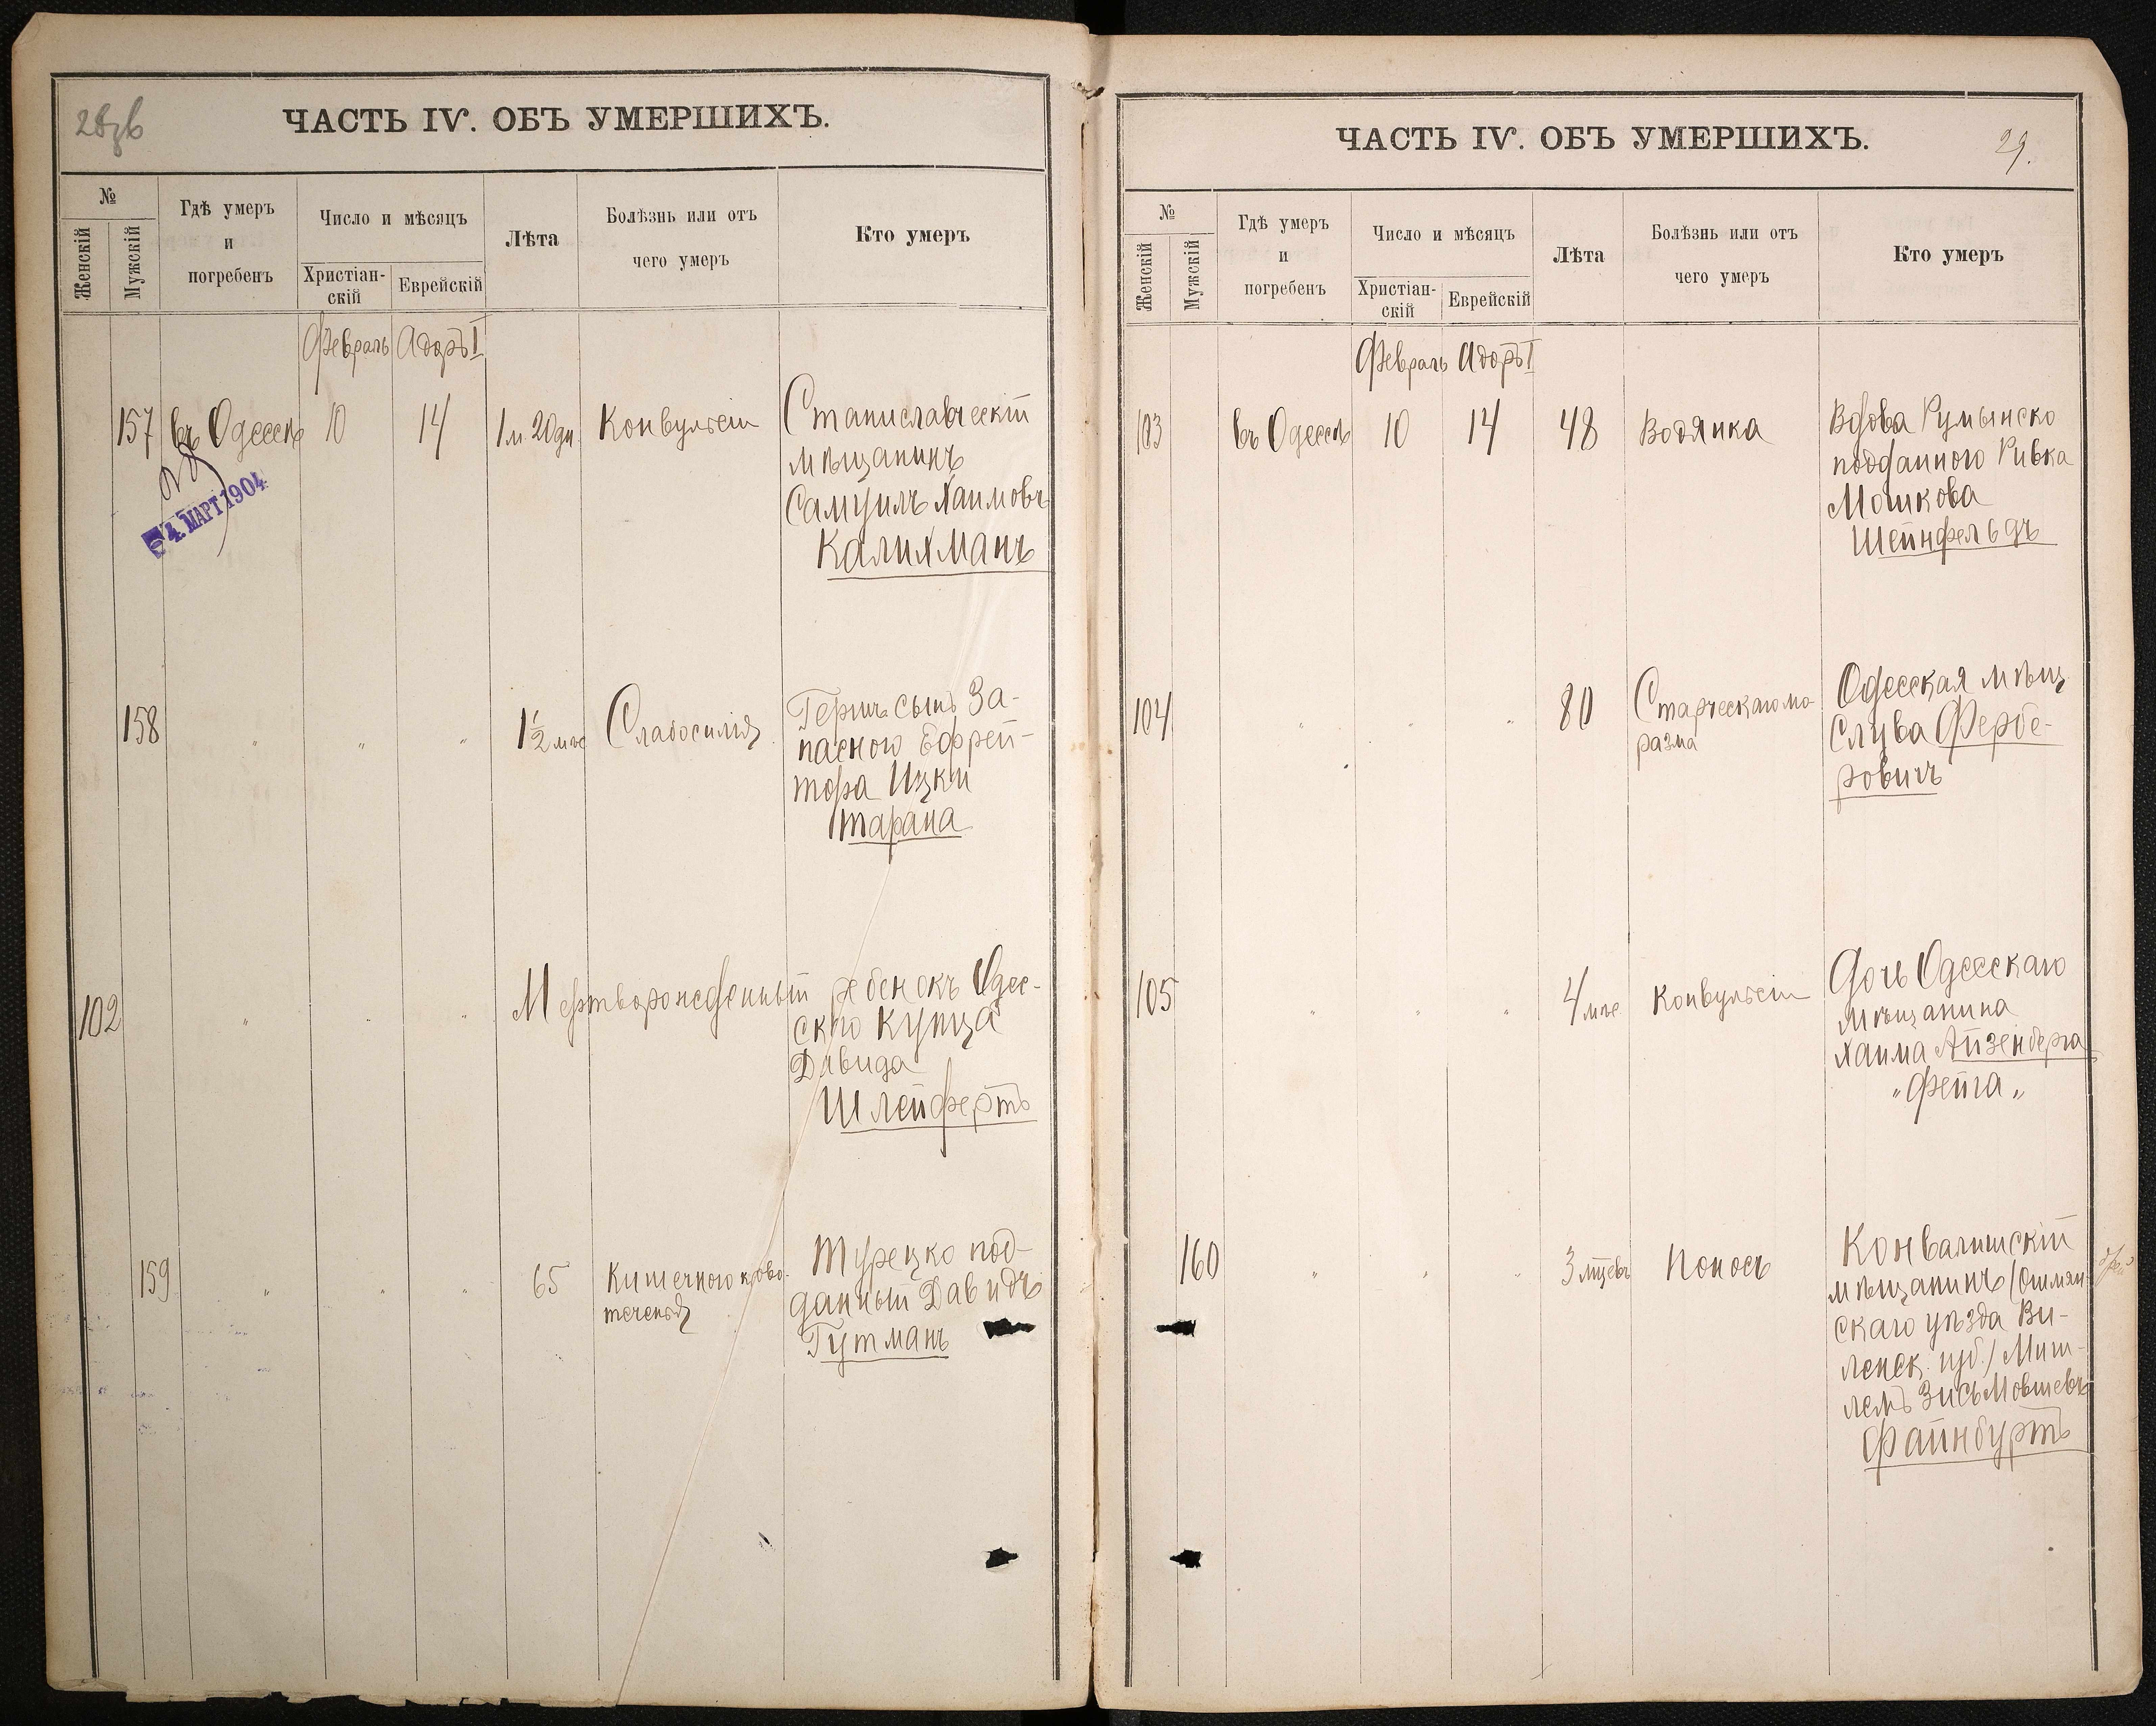 28об
ЧАСТЬ IV. ОБЪ УМЕРШИХЪ.
№
Женскій
Мужскій
Гдѣ умеръ
и
погребенъ
Число и мѣсяцъ
Христіан-
скій
Еврейскій
Лѣта
Болѣзнь или отъ
чего умеръ
Кто умеръ
Февраль Адоръ I
157 въ Одессѣ 10 14 1 м. 20 дн. Конвульсіи Станиславческій
мѣщанинъ
Самуилъ Хаимовъ
Калихманъ
4. МАРТ 1904
158 " " " 1½ мѣс Слабосилія Гершъ сынъ За-
паснаго Ефрей-
тора Ицки
Тарана
102 " " " Мертворожденный ребенокъ Одес-
скаго купца
Давида
Шлейфертъ
159 " " " 65 Кишечного крово-
теченія
Турецко под-
данный Давидъ
Гутманъ
ЧАСТЬ IV. ОБЪ УМЕРШИХЪ.
29.
№
Женскій
Мужскій
Гдѣ умеръ
и
погребенъ
Число и мѣсяцъ
Христіан-
скій
Еврейскій
Лѣта
Болѣзнь или отъ
чего умеръ
Кто умеръ
Февраль Адоръ I
103 въ Одессѣ 10 14 48 Водянка Вдова Румынско
подданного Ривка
Мошкова
Шейнфельдъ
104 " " " 80 Старческаго ма-
разма
Одесская мѣщ
Слува Фербе-
ровичъ
105 " " " 4 мѣс Конвульсіи Дочь Одесскаго
Мѣщанина
Хаима Айзенберга
"Фейга"
160 " " " 3 мѣсцевъ Поносъ Конвалишскій
мѣщанинъ /Ошмян-
скаго уѣзда Ви-
ленск. губ./ Миш-
лемъ Зисъ Мовшевъ
Файнбуртъ